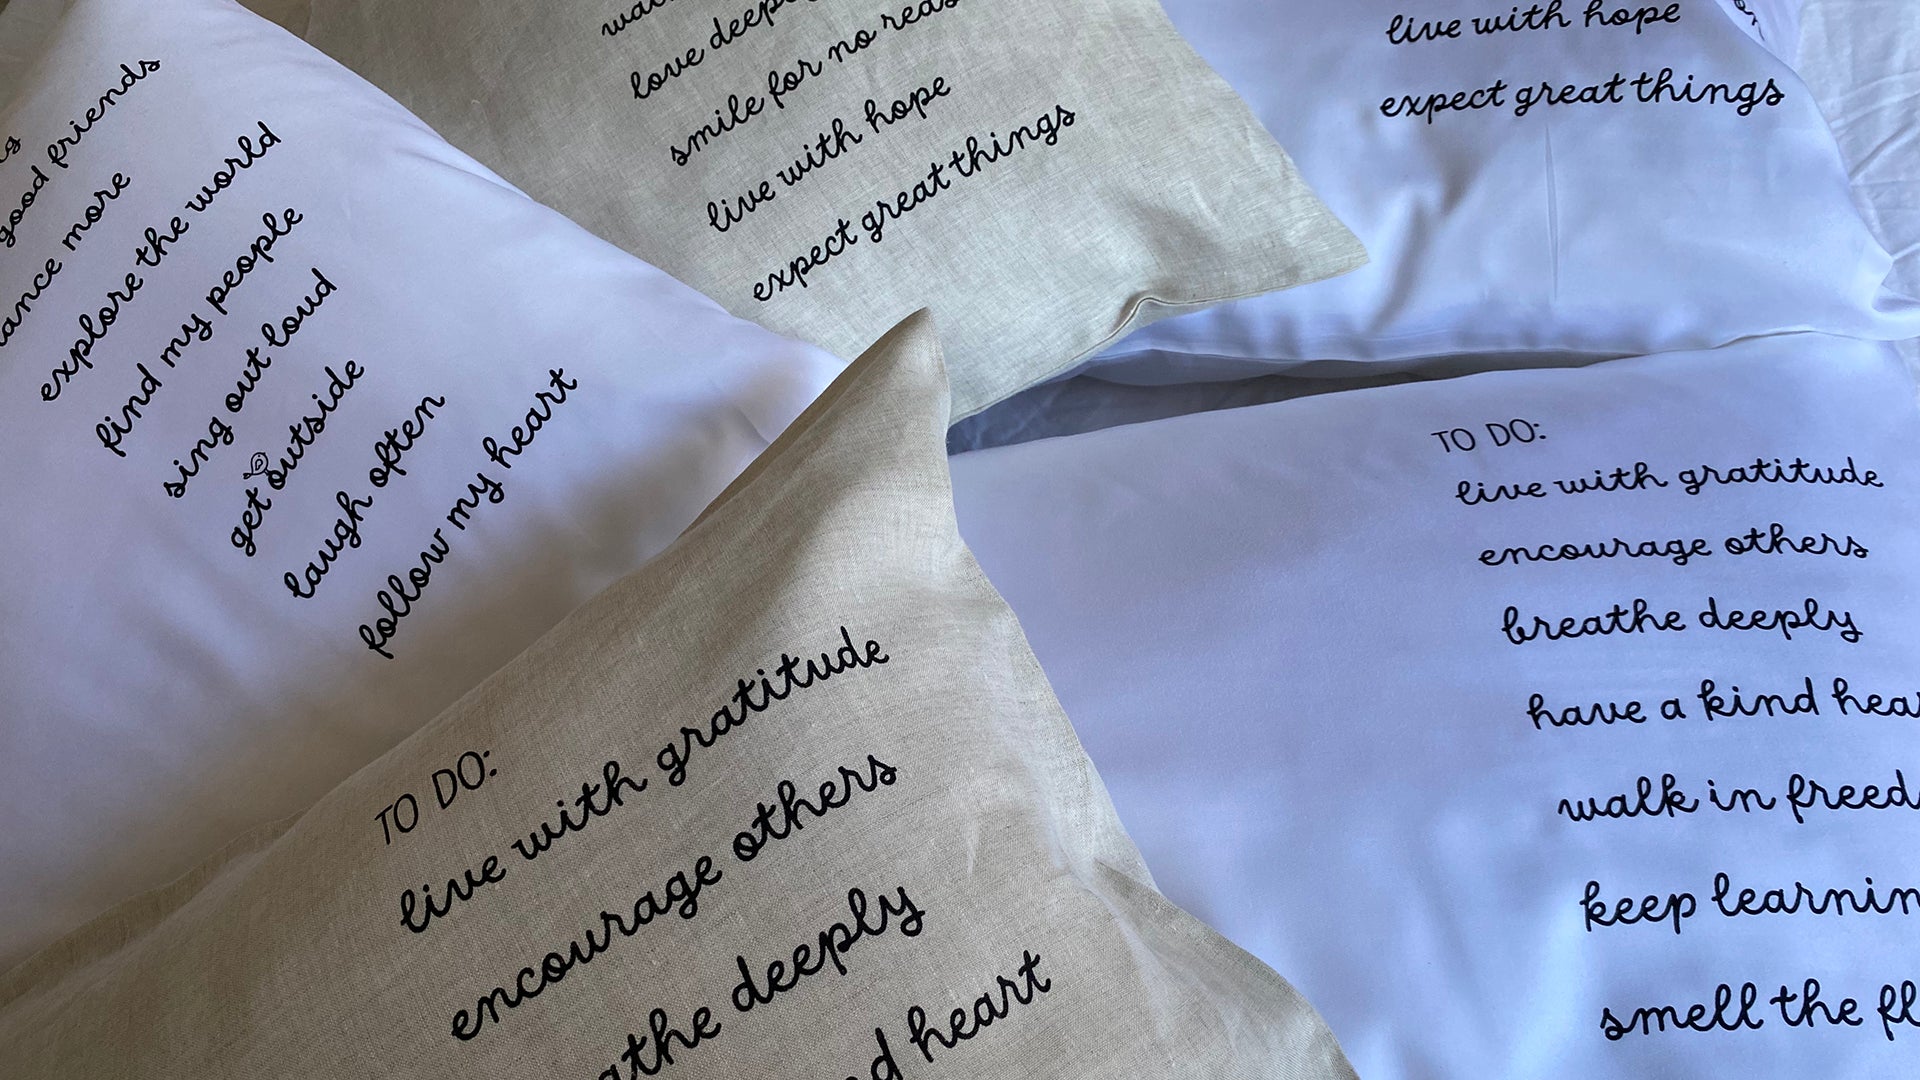 good friends
more
explore the world
find my people
sing out loud
get outside
laugh often
follow my heart
love deeply
smile for no
live with hope
expect great things
live with hope
expect great things
TO DO:
live with gratitude
encourage others
deeply
heart
TO DO:
live with gratitude
encourage others
breathe deeply
have a kind
walk in
keep
smell the